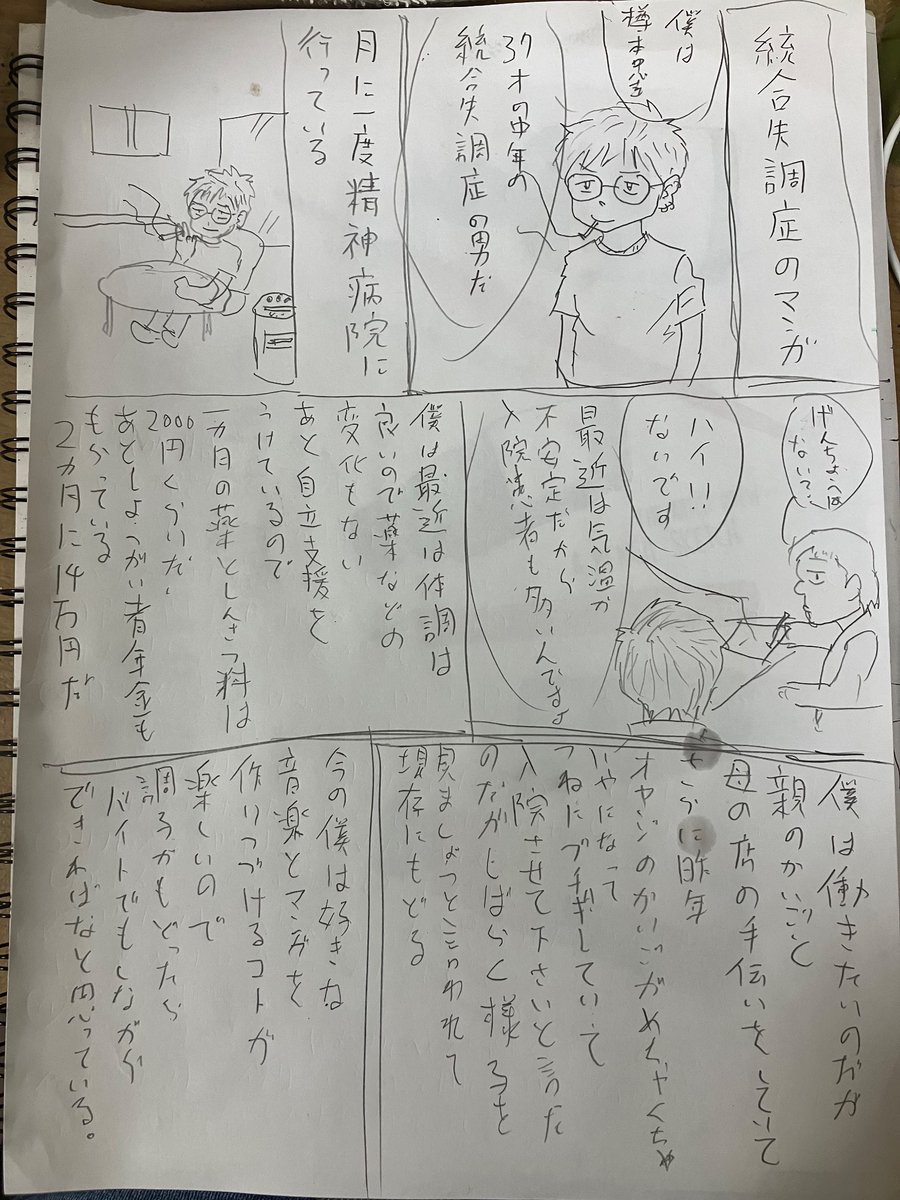 統合失調症のマンガ
僕は
樽本
37才の中年の
統合失調症の男だ
月に一度精神病院に
行っている
げんちょうは
ないて、
ハイ!!
ないです
最近は気温が
不安定だから
入院患者も多いんですよ
僕は最近は体調は
良いので薬などの
変化もない
あと自立支援を
うけているので
一カ月の薬としんさつ料は
2000円くらいだ、
あとしょうがい者年金も
もらっている
2カ月に14万円だ
僕は働きたいのだが
親のかいごと
母の店の手伝いをしていて
さらに昨年
オヤジのかいごがめちゃくちゃ
いやになって
つねにブチギレしていて
入院させて下さいと言った
のだがしばらく様子を
見ましょうと言われて
現存にもどる
今の僕は好きな
音楽とマンガを
作りつづけるコトが
楽しいので
調子がもどったら
バイトでもしながら
できればなと思っている。